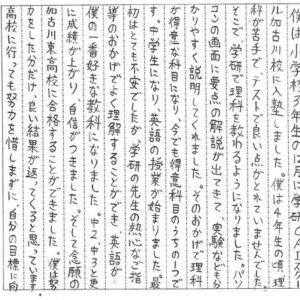 僕は小学校
ル加古川校に入塾しました。僕は4年生の頃、理
科が苦手で、テストで良い点がとれていませんでした。
そこで、学研で理科を教わるようになりました。パソ
コンの画面に要点の解説が出てきて、実験なども分
かりやすく説明してくれました。そのおかげで理科
が得意な科目になり、今でも得意科目のうちの1つで
す。中学生になり、英語の授業が始まりました。最
初はとても不安でしたが、学研の先生の熱心なご指
導のおかげでよく理解することができ、英語が
僕の一番好きな教科になりました。中2、中3と更
に成績が上がり、自信がつきました。そして念願の
加古川東高校に合格することができました。僕は努
力をした分だけ、良い結果が返ってくると思っています。
高校に行っても努力を惜しまずに、自分の目標に向